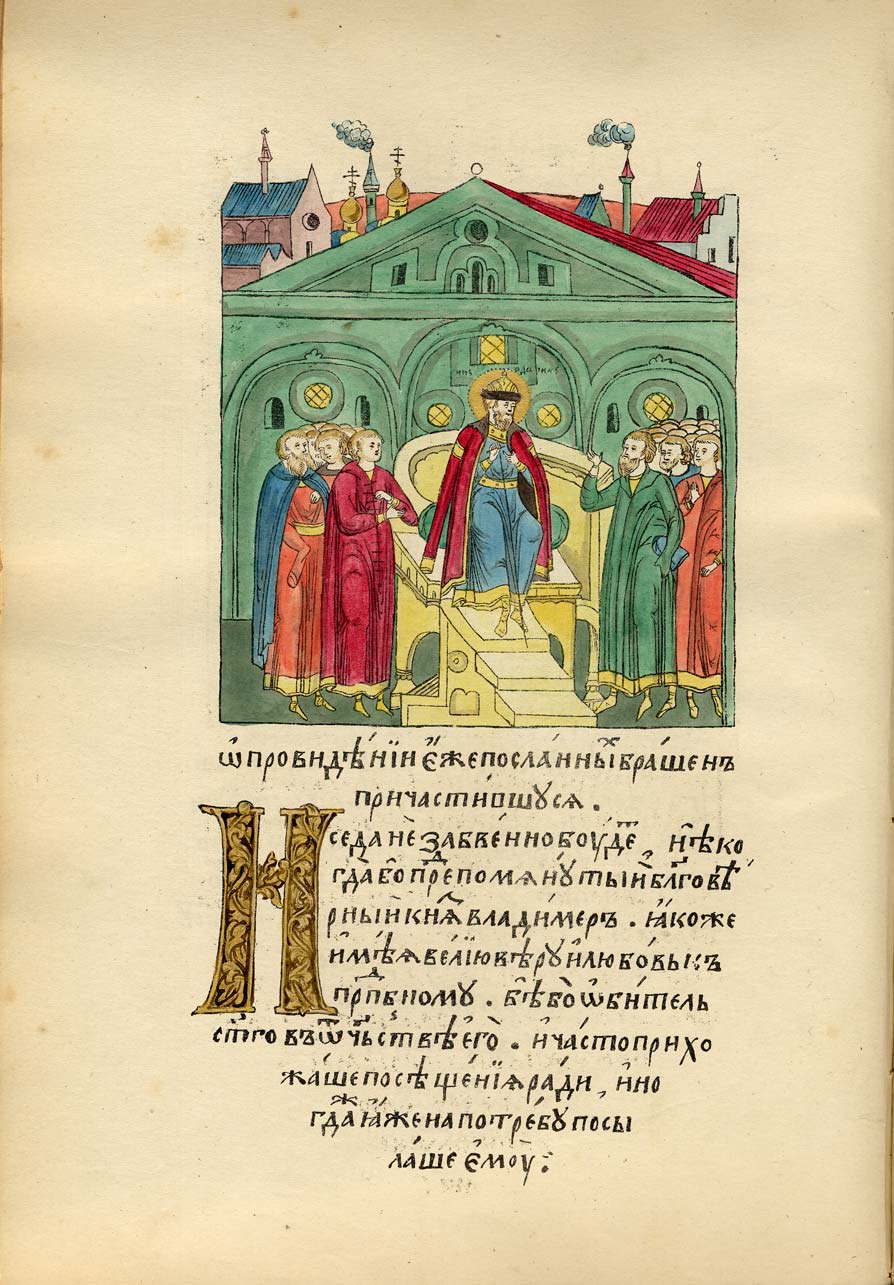 ѡпровидѣ́нїи є҆́жепосла́нныⷯбра́шенъ
причасти́вшуся .
Исеꙗ҆дане́заⷠве́нноⷠбоу́деⷮ , нѣ́ко
гда́бопреⷣпомяну́тый блⷢ҇говѣ́
рный кнⷥ҇ьвлади́мерꙋ . ꙗ҆́коже
и҆мѣ́ѧве́лїювѣ́руи҆любо́вькъ
прпⷣбному . бѣ́боѡ҆би́тель
ст҃гові въѻ҆ч҃ьствѣе҆го̀ . и҆ча́стоприхо
жа́шепосѣще́нїѧра́ди , и҆но
гда́ꙗ҆́женапотре́бупосы
ла́шеє҆моу̀ :